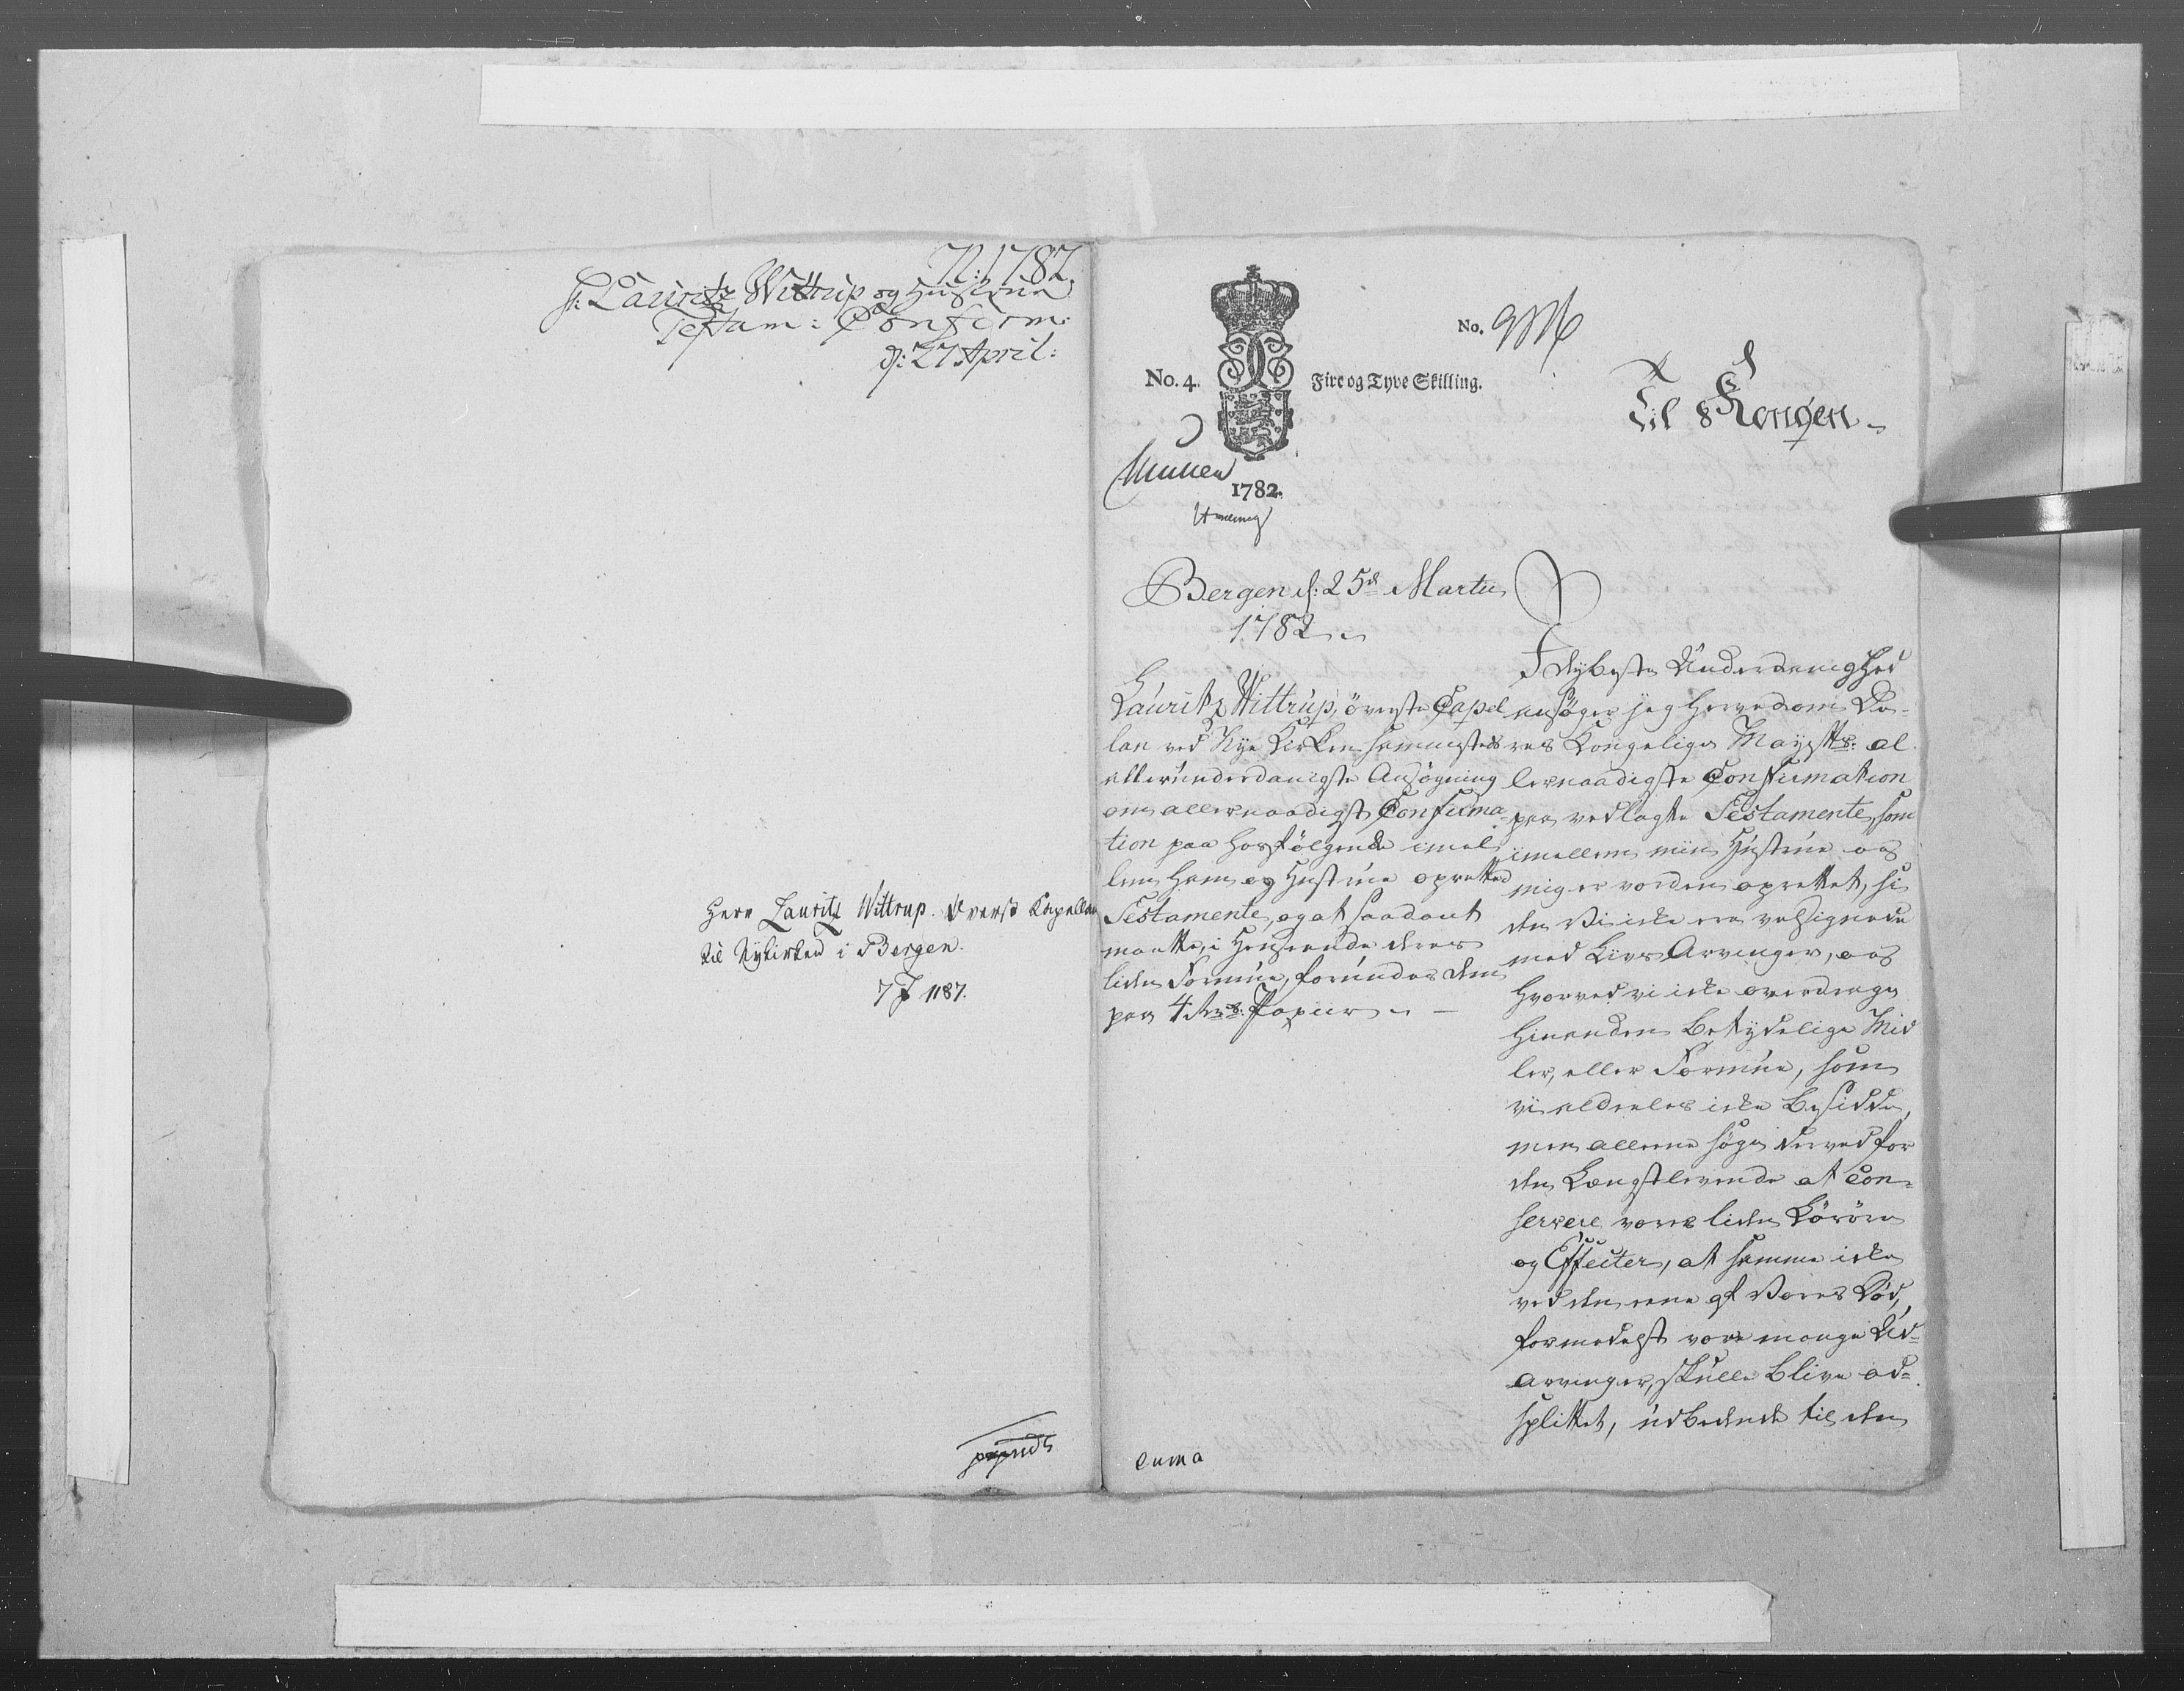 N: 1782.
H: Lauritz Wittrup og Hustrue
Testam: Confirm:
d: 27 April:
Herr Lauritz Wittrup. Øverst Capellan
til Nykirken i Bergen.
1187.
No. 4.
Fire og Tyve Skilling.
1782.
No.
Til Kongen
Bergen d: 25de Martii
1782
Lauritz Wittrup, överste Capel
lan ved Nye Kirken sammesteds
allerunderdanigste Ansøgning
om allernaadigst Confirma-
tion paa hosfölgende imel
lem ham og Hustrue opretted
Testamente, og at saadant
maatte, i Henseende deres
liden Formue, forundes dem
paa 4 Papiir
I dybeste Underdanighed
ansøger jeg herved om De-
res Kongelige Mayestts: al
lernaadigste Confirmation
paa vedlagte Testamente, som
imellem min Hustrue og
mig er vorden oprettet, si
den Vi icke ere velsignede
med Livs Arvinger, og
hvorved vi icke overdrage
hinanden betydelige Mid
ler, eller Formue, som
vi aldeeles icke besidde,
men alleene søge derved for
den Længstlevende at con-
servere vores liden Börören
og Effecter, at samme icke
ved den eene af Vores Död,
formedelst vore mange Ud-
arvinger, skulle blive ad-
splittet, udbedende til den